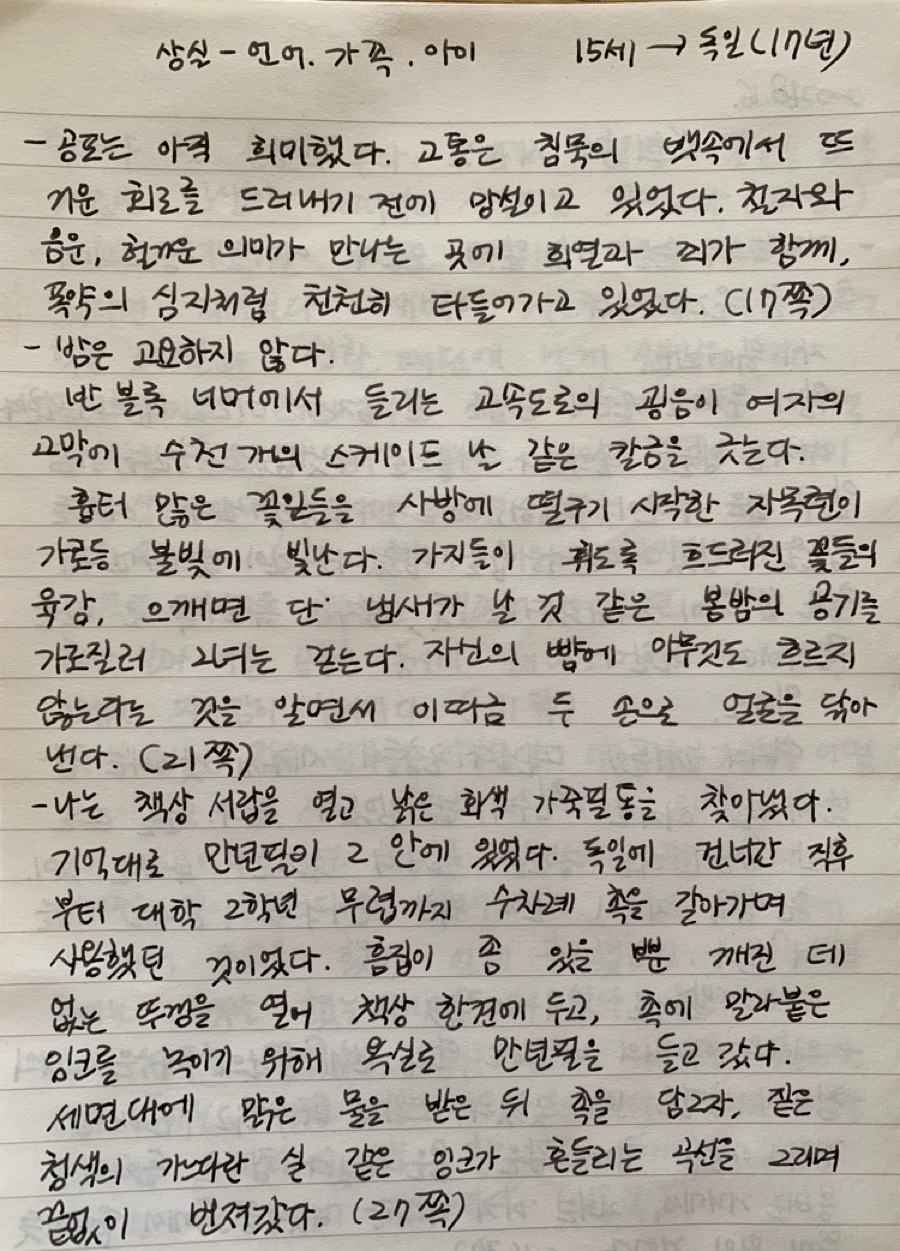 상실 - 언어. 가족. 아이 15세 → 독일(17년)
- 공포는 아직 희미했다. 고통은 침묵의 뱃속에서 뜨
거운 회로를 드러내기 전에 망설이고 있었다. 철자와
음운, 헐거운 의미가 만나는 곳에 희열과 죄가 함께,
폭약의 심지처럼 천천히 타들어가고 있었다. (17쪽)
- 밤은 고요하지 않다.
반 블록 너머에서 들리는 고속도로의 굉음이 여자의
고막에 수천 개의 스케이트 날 같은 칼금을 긋는다.
흉터 많은 꽃잎들을 사방에 떨구기 시작한 자목련이
가로등 불빛에 빛난다. 가지들이 휘도록 흐드러진 꽃들의
육감, 으깨면 단 냄새가 날 것 같은 봄밤의 공기를
가로질러 그녀는 걷는다. 자신의 뺨에 아무것도 흐르지
않는다는 것을 알면서 이따금 두 손으로 얼굴을 닦아
낸다. (21쪽)
- 나는 책상 서랍을 열고 낡은 회색 가죽필통을 찾아냈다.
기억대로 만년필이 그 안에 있었다. 독일에 건너간 직후
부터 대학 2학년 무렵까지 수차례 촉을 갈아가며
사용했던 것이었다. 흠집이 좀 있을 뿐 깨진 데
없는 뚜껑을 열어 책상 한켠에 두고, 촉에 말라붙은
잉크를 녹이기 위해 욕실로 만년필을 들고 갔다.
세면대에 맑은 물을 받은 뒤 촉을 담그자, 짙은
청색의 가느다란 실 같은 잉크가 흔들리는 곡선을 그리며
끝없이 번져갔다. (27쪽)